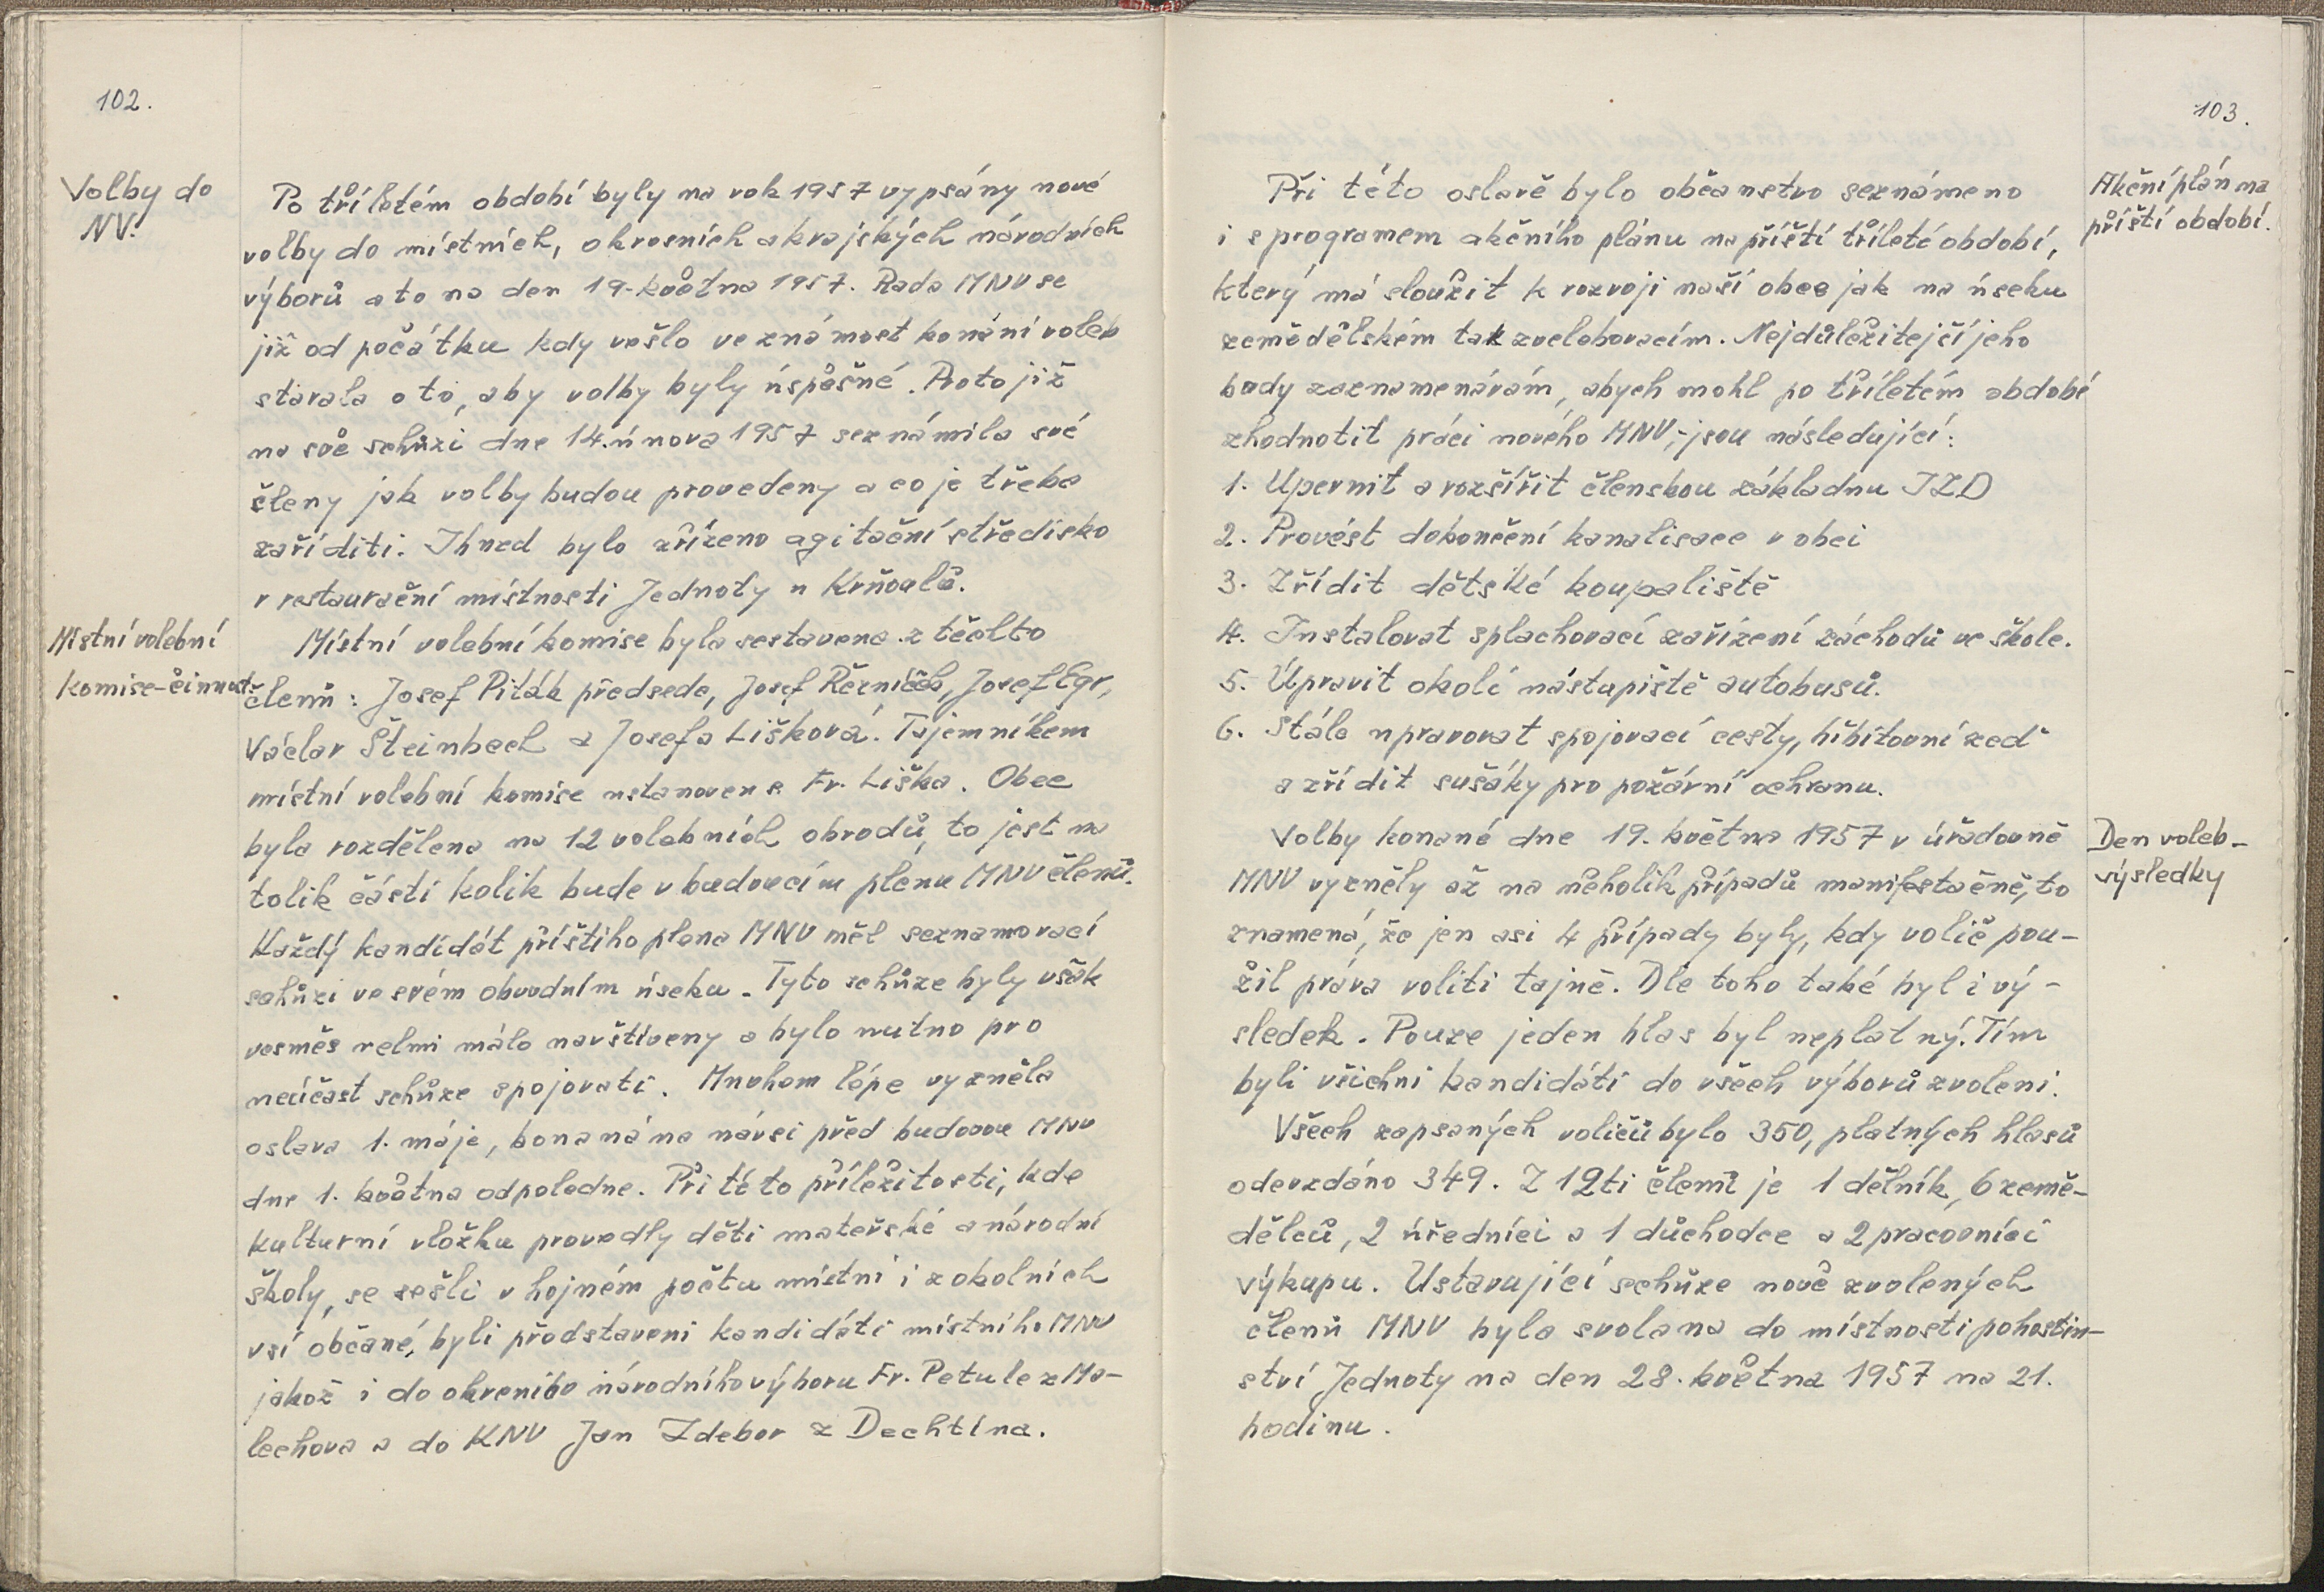 102.
Volby do
NV.
Po tříletém období byly na rok 1957 vypsány nové
volby do místních, okresních a krajských národních
výborů a to na den 19. května 1957. Rada MNV se
již od počátku kdy vešlo ve známost konání voleb
starala o to, aby volby byly úspěšné. Proto již
na své schůzi dne 14. února 1957 seznámila své
členy jak volby budou provedeny a co je třeba
zaříditi. Ihned bylo zřízeno agitační středisko
v restaurační místnosti Jednoty u Krňoulů.
Místní volební
komise-činnost.
Místní volební komise byla sestavena z těchto
členů: Josef Piták předseda, Josef Řezníček, Josef Egr,
Václav Šteinbach a Josefa Lišková. Tajemníkem
místní volební komise ustanoven s. Fr. Liška. Obec
byla rozdělena na 12 volebních obvodů, to jest na
tolik částí kolik bude v budoucím plénu MNV členů.
Každý kandidát příštího plena MNV měl seznamovací
schůzi ve svém obvodním úseku. Tyto schůze byly však
vesměs velmi málo navštíveny a bylo nutno pro
neúčast schůze spojovati. Mnohem lépe vyzněla
oslava 1. máje, konaná na návsi před budovou MNV
dne 1. května odpoledne. Při této příležitosti, kde
kulturní vložku provedly děti mateřské a národní
školy, se sešli v hojném počtu místní i z okolních
vsí občané, byli představeni kandidáti místního MNV
jakož i do okreního národního výboru Fr. Petule z Ma-
lechova a do KNV Jan Zdebor z Dechtína.
103.
Akční plán na
příští období.
Při této oslavě bylo občanstvo seznámeno
i s programem akčního plánu na příští tříleté období,
který má sloužit k rozvoji naší obce jak na úseku
zemědělském tak zvelebovacím. Nejdůležitejčí jeho
body zaznamenávám, abych mohl po tříletém období
zhodnotit práci nového MNV,-jsou následující:
1. Upevnit a rozšířit členskou základnu JZD
2. Provést dokončení kanalisace v obci
3. Zřídit dětské koupaliště
4. Instalovat splachovací zařízení záchodů ve škole.
5. Úpravit okolí nástupiště autobusů.
6. Stále upravovat spojovací cesty, hřbitovní zeď
a zřídit sušáky pro požární ochranu.
Den voleb-
výsledky
Volby konané dne 19. května 1957 v úřadovně
MNV vyzněly až na několik případů manifestačně, to
znamená, že jen asi 4 případy byly, kdy volič pou-
žil práva voliti tajně. Dle toho také byl i vý-
sledek. Pouze jeden hlas byl neplatný. Tím
byli všichni kandidáti do všech výborů zvoleni.
Všech zapsaných voličů bylo 350, platných hlasů
odevzdáno 349. Z 12ti členů je 1 dělník, 6 země-
dělců, 2 úředníci a 1 důchodce a 2 pracovníci
výkupu. Ustavující schůze nově zvolených
členů MNV byla svolana do místnosti pohostin-
ství Jednoty na den 28. května 1957 na 21.
hodinu.